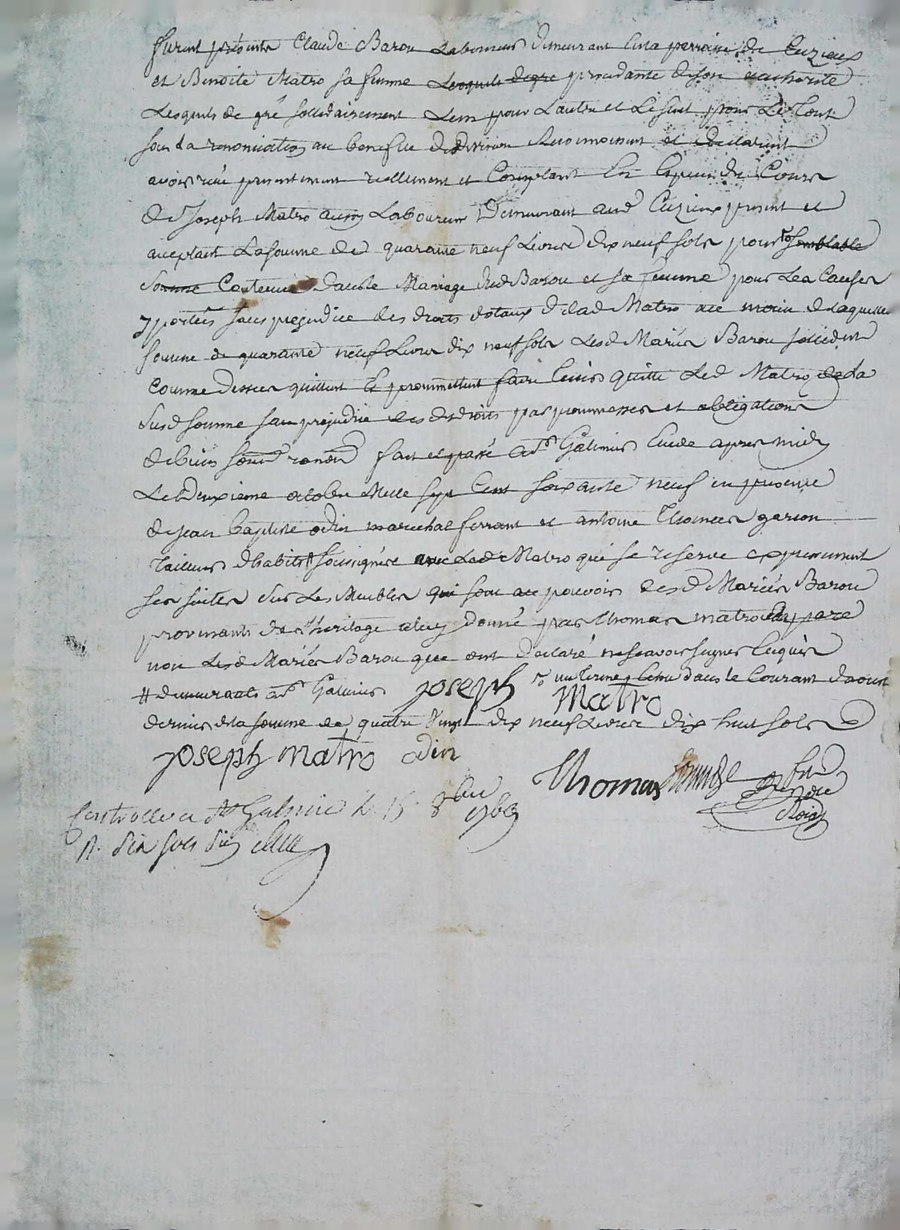 furent presents Claude Barou Laboureur demeurant en la parroisse de Cuzieux
et Benoite Matro sa femme Lesquels de gré procedante de son authorité
Lesquels de gré sollidairement Lun pour Lautre et Le seul pour Le tout
sous La renonciation au benefice de division Reconnoissent et declarent
avoir reçu presentement reellement et Comptant En Espece de Cours
de Sr Joseph Matro aussy Laboureur Demeurant aud Cuzieux present et
acceptant La somme de quarante neuf Livres dix neuf sols pour semblable
somme Contenue Dans le Mariage dud Barou et sa femme pour Les Causes
y portées sans prejudice des droits dotaux de lad Matro au moien de laquelle
somme de quarante neuf Livres dix neuf sols Lesd Mariés Barou sollidient
Comme dessus quittent et promettent faire tenir quitte Led Matro de La
susd somme sans prejudice des droits par promesses et obligations
de biens soum renon fait et passé a St Galmier Etude apres midy
Le Deuxieme octobre Mille sept Cent soixante neuf en presence
de Jean Baptiste odin marechal ferrant et antoine Thomas garçon
tailleur d'habits # soussignés avec Led Matro qui se reserve expressement
ses suites sur Les Meubles qui sont au pouvoir desd Mariés Barou
provenants de l'heritage a luy donné par thomas matro pere
non Lesd Mariés Barou qui ont declaré ne scavoir signer Enquis
# demeurants a St Galmier Joseph Matro un terme Echu dans le Courant daoust
dernier de la somme de quatre Vingt dix neuf Livres dix huit sols
joseph matro odin
Thomas
Controllé a St Galmier le 15 8bre 1769
R. dix sols six